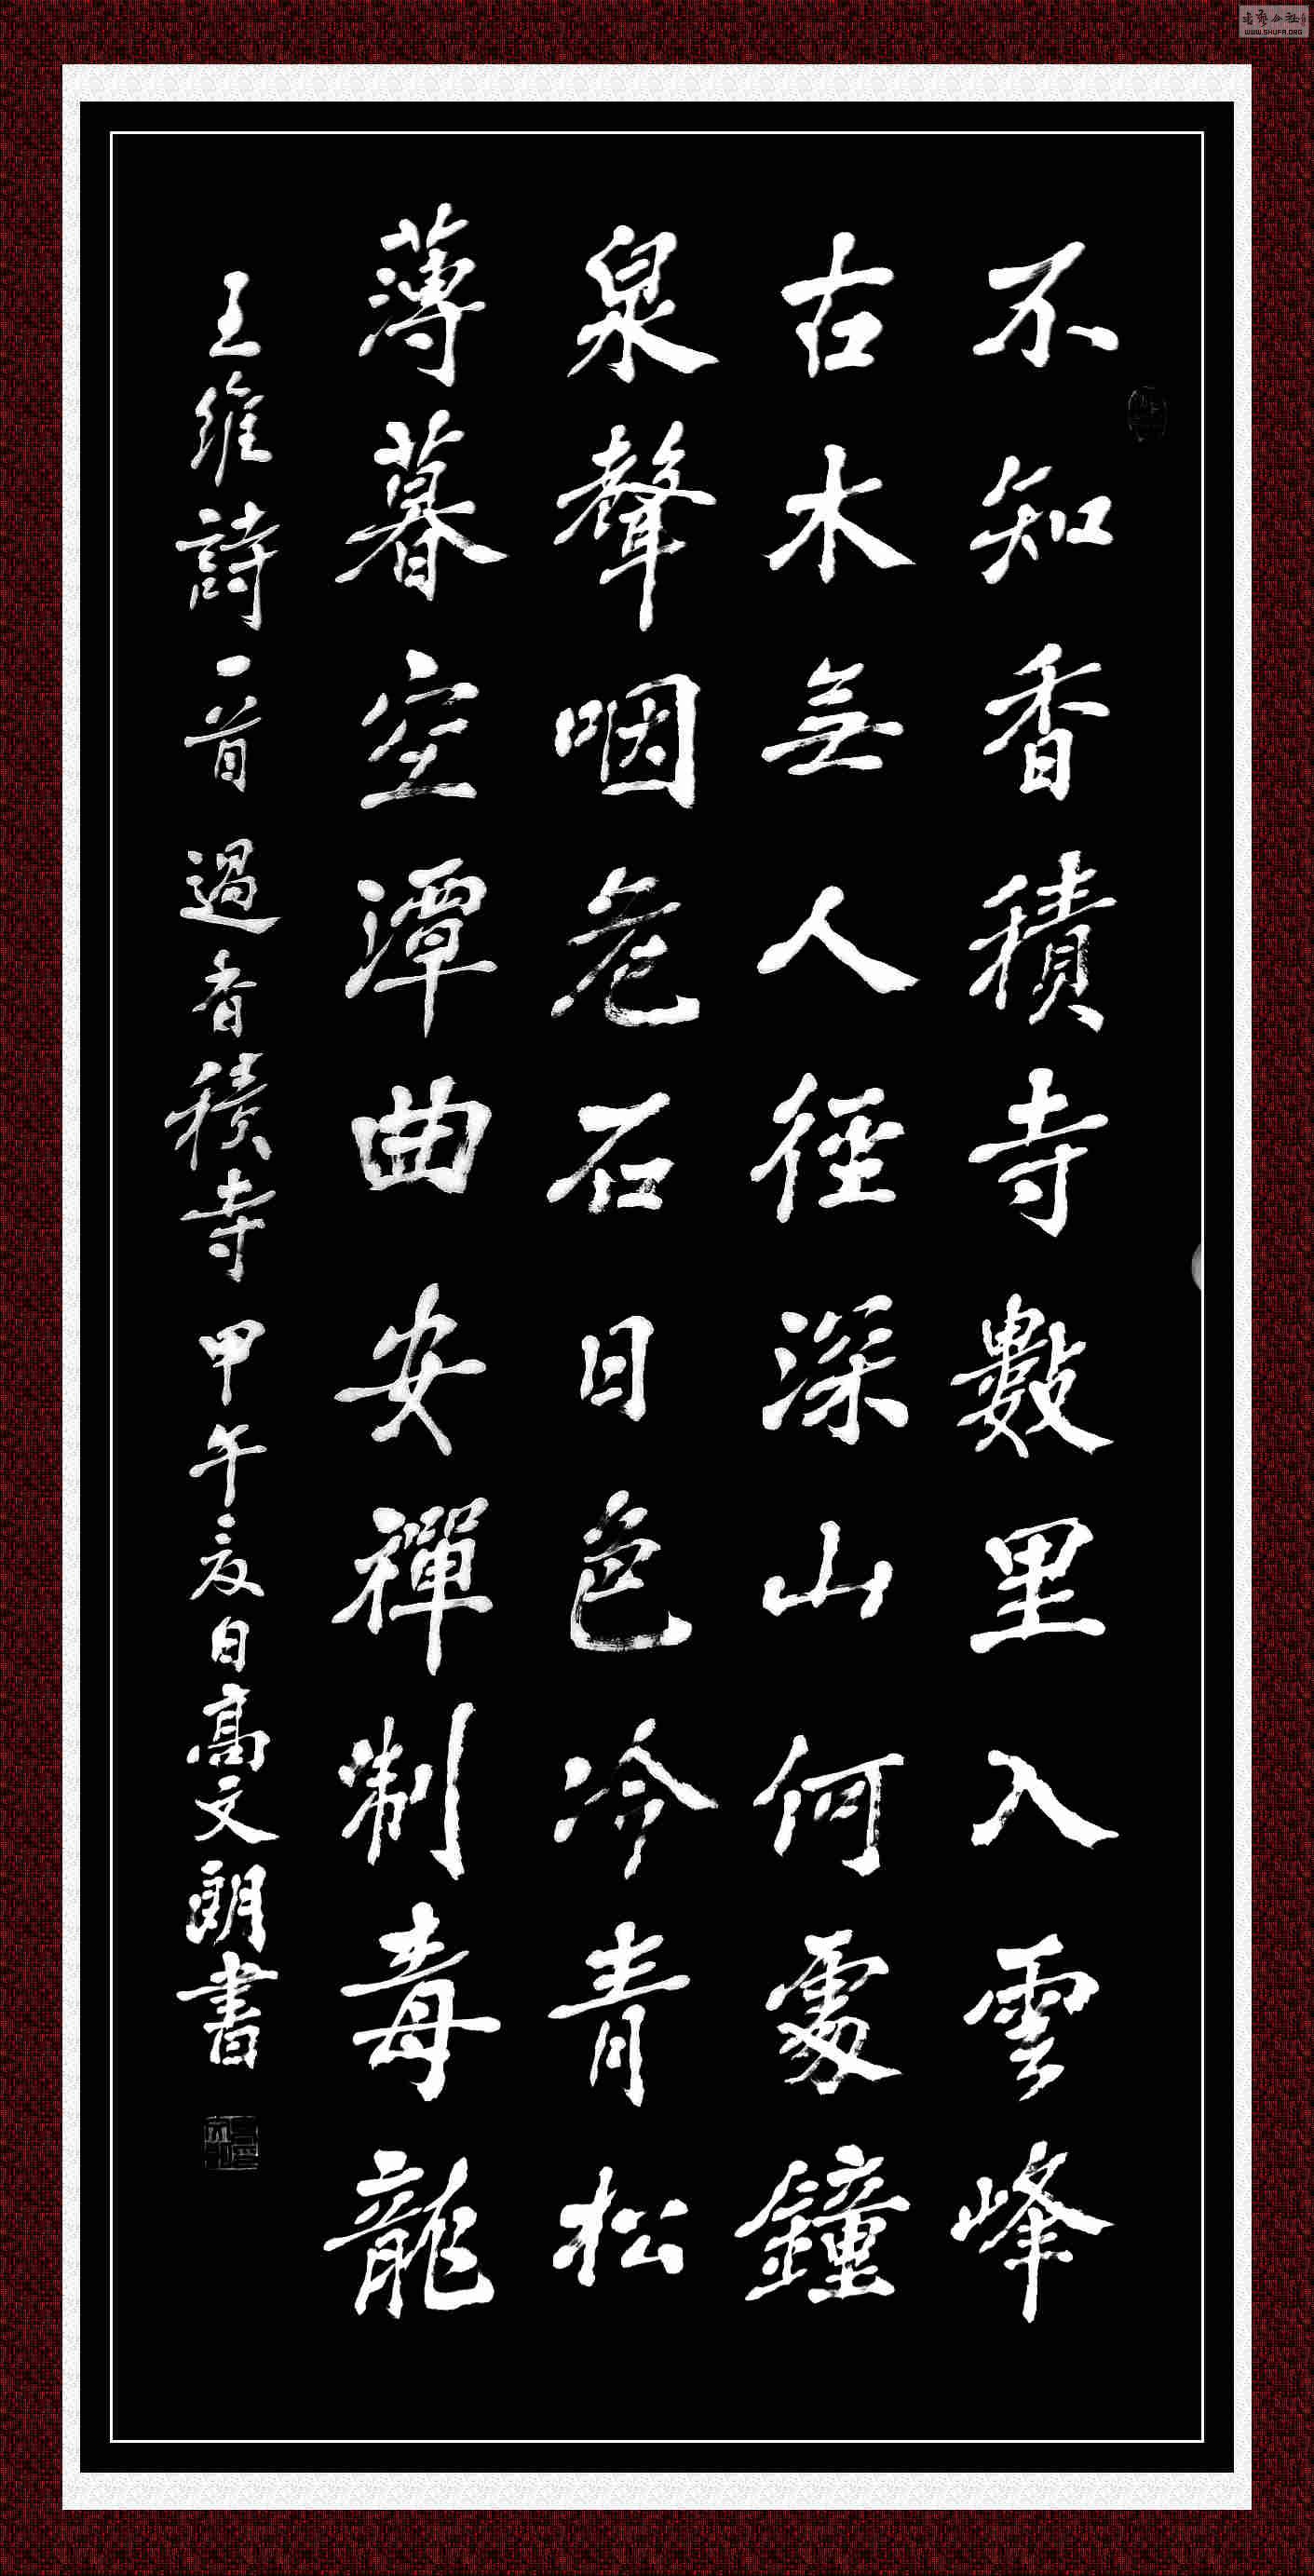 不知香積寺數里入雲峰
古木無人徑深山何處鐘
泉聲咽危石日色冷青松
薄暮空潭曲安禪制毒龍
王維詩一首過香積寺甲午夏日高文朗書
WWW.SHUFA.ORG